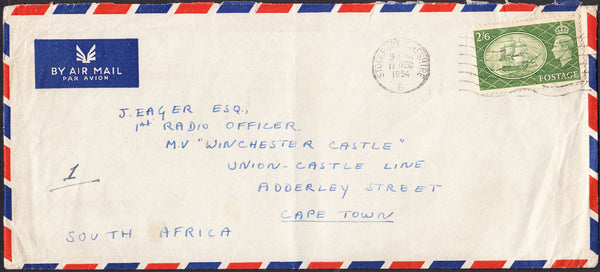 BY AIR MAIL
PAR AVION
2/6
POSTAGE
17 DEC
1954
J. EAGER ESQ.,
1st RADIO OFFICER.
M.V "WINCHESTER CASTLE"
UNION-CASTLE LINE
ADDERLEY STREET
CAPE TOWN
SOUTH AFRICA
1